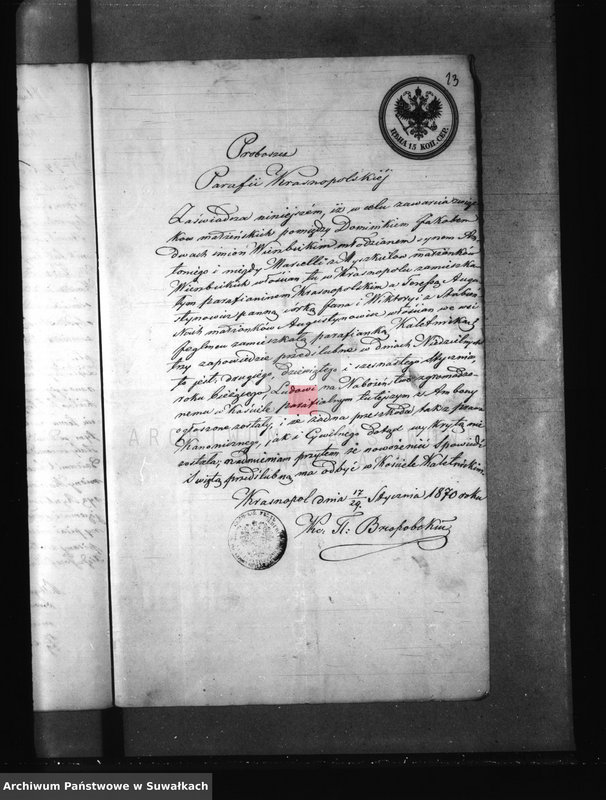 13
ЦѢНА 15 КОП. СЕР.
Proboszcz
Parafii Krasnopolskiéj
Zaświadcza niniejszém, iż w celu zawarcia związ-
ków małżeńskich pomiędzy Dominikiem Jakóbem
dwóch imion Wierzbickim młodzianem synem An-
toniego i niegdy Maryanny z małżonków
Wierzbickich włościan tu w Krasnopolu zamieszka-
łym parafianinem Krasnopolskim a Teressą Augu-
stynowicz panną córką Jana i Wiktoryi z
małżonków Augustynowicz włościan we wsi
zamieszkałą parafianką Kaletnikską
trzy zapowiedzie przedślubne w dniach Niedzielnych
to jest: drugiego, dziewiątego i szesnastego Stycznia
roku bieżącego Ludowi na Nabożeństwo zgromadzo-
nemu w kościele parafialnym tutejszym z Ambony
ogłoszone zostały, i że żadna przeszkoda tak z prawa
Kanonicznego, jak i Cywilnego dotąd wykrytą nie
została; nadmieniam przytem że nowożeńcy Spowiedź
Świętą przedślubną ma odbyć w Kościele Kaletnikskim
Krasnopol dnia 17/29 Stycznia 1870 roku
Archiwum Państwowe w Suwałkach